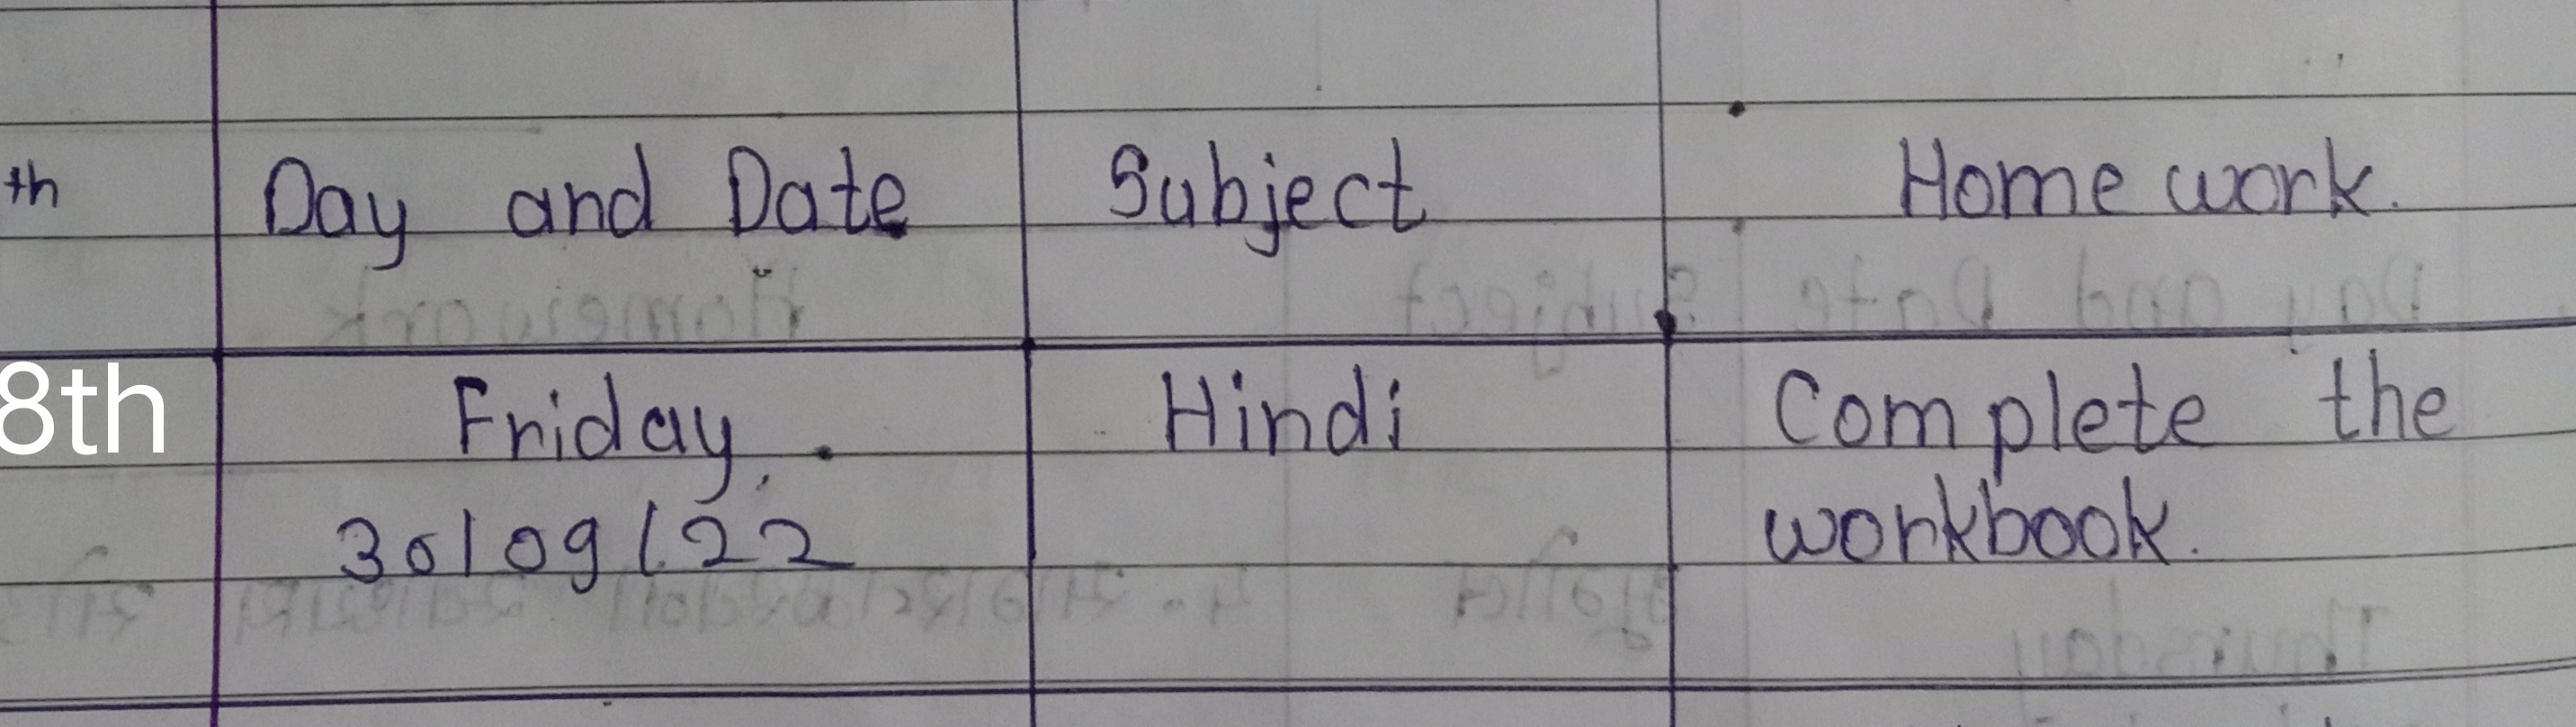 th Day and Date Subject Home work.
8th Friday, Hindi Complete the
30/09/22 workbook.